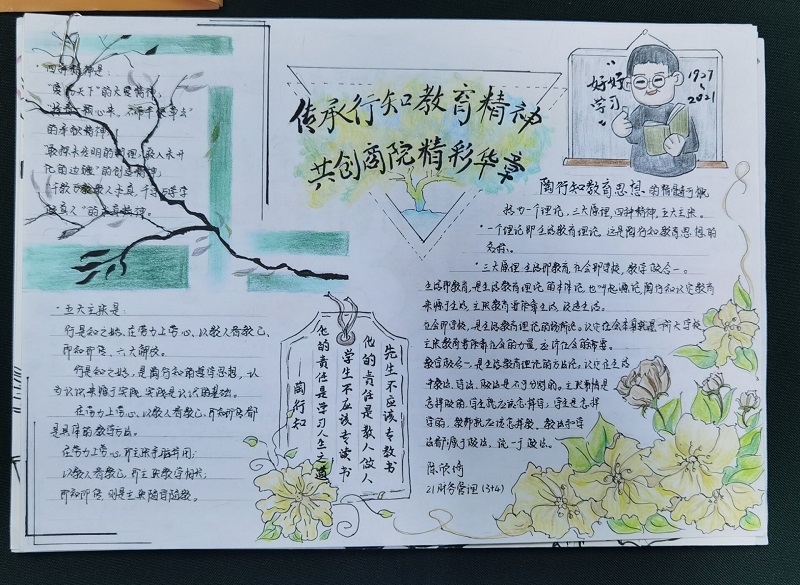 传承行知教育精神
共创商院精彩华章
好好
学习
1927
2021
"四种精神是：
"爱满天下"的大爱精神，
"捧着一颗心来，不带半根草去"
的奉献精神，
敢探未发明的新理，敢入未开
化的边疆"的创造精神；
"千教万教教人求真，千学万学学
做真人"的求真精神。
陶行知教育思想的精髓可概
括为一个理论，三大原理，四种精神，五大主张。
一个理论即生活教育理论，这是陶行知教育思想的
三大原理：生活即教育，社会即学校，教学做合一。
生活即教育，是生活教育理论的本体论，
来源于生活，主张教育要依靠生活，改造生活。
社会即学校，是生活教育理论的场所论，
主张教育要依靠社会的力量，适于社会的需要。
教学做合一，是生活教育理论的方法论，认为在生活
中教法、学法、做法是不可分割的。主张事情是
怎样做的，学生就应该怎样学；学生是怎样
学的，教师就应该怎样教，教法和学
法都源于做法，统一于做法。
陈欣倚
21财务管理(3+4)
"五大主张是：
行是知之始、在劳力上劳心、以教人者教己、
即知即传、六大解放。
行是知之始，是陶行知的哲学思想，认
为认识来源于实践，实践是认识的基础。
在劳力上劳心，以教人者教己，即知即传都
是具体的教学方法。
在劳力上劳心，即主张手脑并用；
以教人者教己，即主张教学相长；
即知即传，则是主张随学随教。
先生不应该专教书
他的责任是教人做人
学生不应该专读书
他的责任是学习人生之道
——陶行知